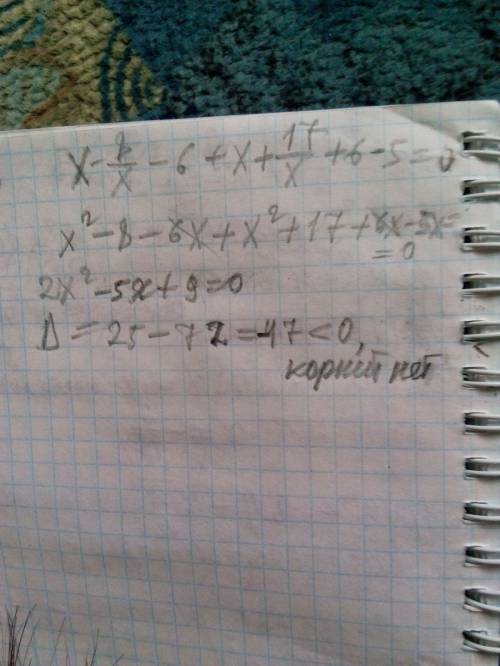 x - 8/x - 6 + x + 17/x + 6 - 5 = 0
x² - 8 - 6x + x² + 17 + 6x - 5x =
= 0
2x² - 5x + 9 = 0
D = 25 - 72 = -47 < 0,
корній нет